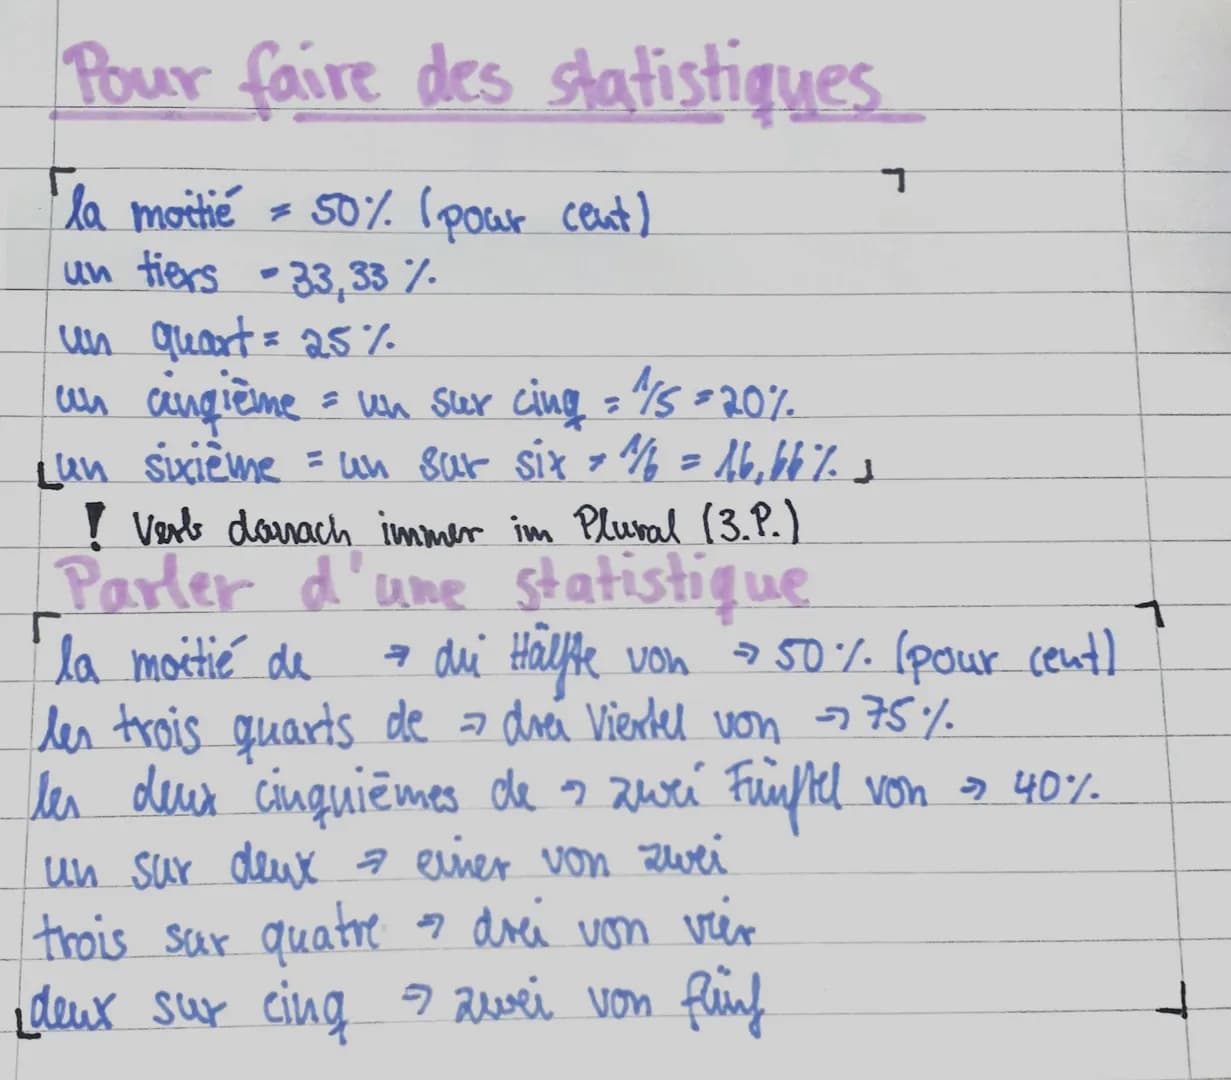 Pour faire des statistiques
la moitié = 50% (pour cent)
un tiers = 33,33 %
un quart = 25%
un cinqième = un sur cinq = 1/5 = 20%
un sixième = un sur six = 1/6 = 16,66%
! Verb danach immer im Plural (3.P.)
Parler d'une statistique
la moitié de → die Hälfte von → 50% (pour cent)
les trois quarts de → drei Viertel von → 75%
les deux cinquièmes de → zwei Fünftel von → 40%
un sur deux → einer von zwei
trois sur quatre → drei von vier
deux sur cinq → zwei von fünf